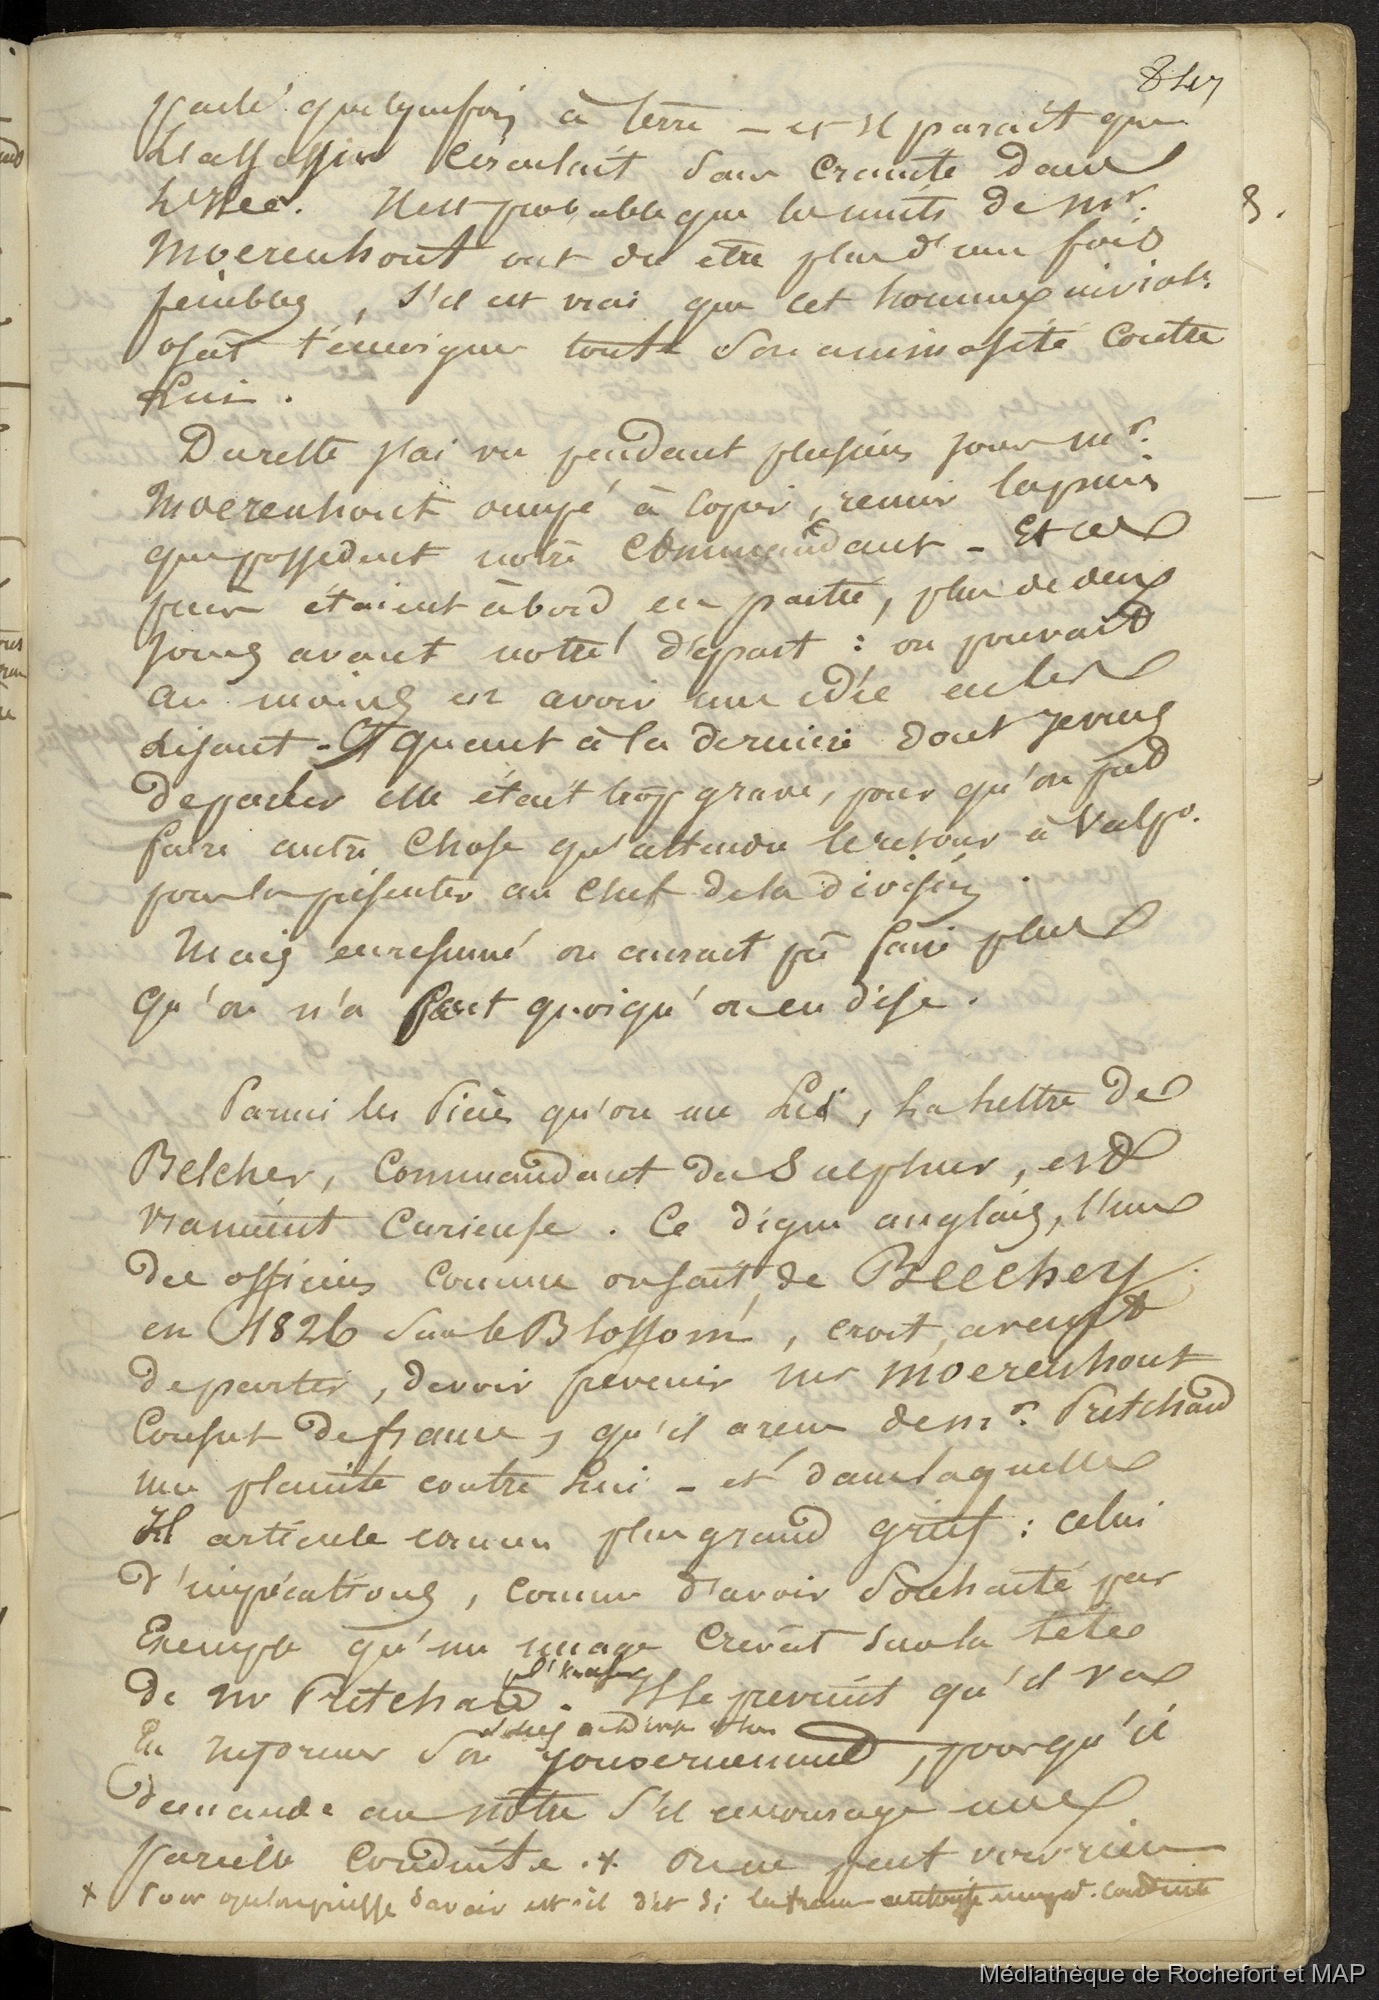 847
parlé quelquefois à terre - et il parait que
L'assassin Circulait sans crainte dans
L'Ilee. Il est probable que les nuits de Mr.
8.
Moerenhout ont du être plus d'une fois
penibles, s'il est vrai que cet homme
osat témoigner toute son animosité contre
Lui.
Dureste j'ai vu pendant plusieurs jours Mr.
Moerenhout occupé à copier, reunir les pieces
que possedent notre Commandant - Et ces
pieces étaient à bord en partie, plus de deux
jours avant notre départ : on pouvait
au moins en avoir une idée en les
Lisant - Et quant à la derniere dont je viens
de parler elle était trop grave, pour qu'on put
faire autre Chose qu'attendre le retour à Valpo.
pour la présenter au Chef de la division.
Mais en resumé on aurait pû faire plus
qu'on n'a fait quoiqu'on en dise.
Parmi les Pieces qu'on me Lit, La Lettre de
Belcher, Commandant du Sulphur, est
vraiment Curieuse. Ce digne anglais, l'un
des officiers comme on sait, de Beechey
en 1826 sur le Blossom, croit, avant
de partir, devoir prevenir Mr Moerenhout
Consul de france, qu'il a reçu de Mr. Pritchard
une plainte contre Lui - et dans laquelle
Il articule comme plus grand grief : celui
d'imprécations, comme d'avoir souhaité par
Exemple qu'un nuage Crevât sur la tête
de Mr Pritchard. Il le previent qu'il va
En informer son gouvernement, pour qu'il
demande au nôtre s'il encourage une
Pareille Conduite. + On ne peut voir rien
+ Pour qu'on puisse savoir est-il dit si la france conduite